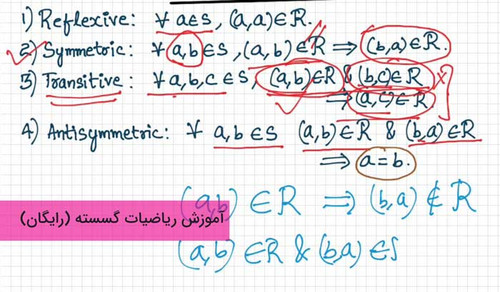 1) Reflexive: ∀ a∈S, (a,a)∈R.
2) Symmetric: ∀ a,b∈S, (a,b)∈R ⇒ (b,a)∈R.
3) Transitive: ∀ a,b,c∈S, (a,b)∈R & (b,c)∈R
⇒ (a,c)∈R
4) Antisymmetric: ∀ a,b∈S (a,b)∈R & (b,a)∈R
⇒ a=b.
(a,b)∈R ⇒ (b,a)∉R
آموزش ریاضیات گسسته (رایگان)
(a,b)∈R & (b,a)∈S